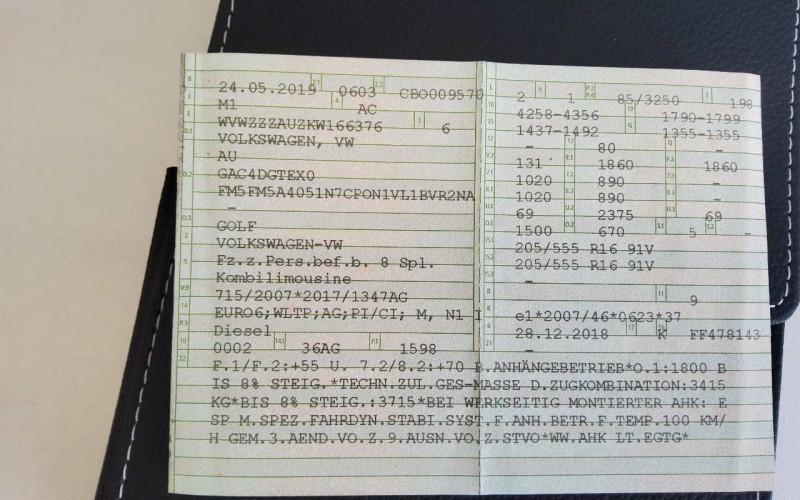 24.05.2019 0603 CBO009570
M1 AC
WVWZZZAUZKW166376 6
VOLKSWAGEN, VW
AU
GAC4DGTEX0
FM5FM5A4051N7CPON1VL1BVR2NA
–
GOLF
VOLKSWAGEN-VW
Fz.z.Pers.bef.b. 8 Spl.
Kombilimousine
715/2007*2017/1347AG
EURO6;WLTP;AG;PI/CI; M, N1 I
Diesel
0002 36AG 1598
2 1 85/3250 198
4258-4356 1790-1799
1437-1492 1355-1355
– 80 –
131 1860 1860
1020 890 –
1020 890 –
69 2375 69
1500 670 5 –
205/555 R16 91V
205/555 R16 91V
–
9
e1*2007/46*0623*37
28.12.2018 K FF478143
–
F.1/F.2:+55 U. 7.2/8.2:+70 F.ANHÄNGEBETRIEB*O.1:1800 B
IS 8% STEIG.*TECHN.ZUL.GES-MASSE D.ZUGKOMBINATION:3415
KG*BIS 8% STEIG.:3715*BEI WERKSEITIG MONTIERTER AHK: E
SP M.SPEZ.FAHRDYN.STABI.SYST.F.ANH.BETR.F.TEMP.100 KM/
H GEM.3.AEND.VO.Z.9.AUSN.VO.Z.STVO*WW.AHK LT.EGTG*